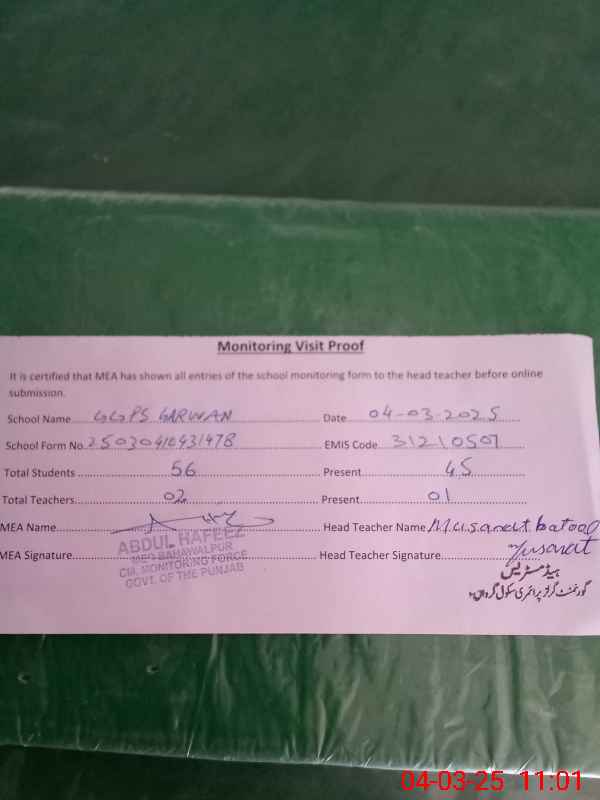 Monitoring Visit Proof
It is certified that MEA has shown all entries of the school monitoring form to the head teacher before online
submission.
School Name GGPS GARWAN Date 04-03-2025
School Form No. 25030410431478 EMIS Code 31210507
Total Students 56 Present 45
Total Teachers 02 Present 01
MEA Name Head Teacher Name Musarat batool
ABDUL HAFEEZ
MEA Signature Head Teacher Signature Musarat
MEO BAHAWALPUR
CM. MONITORING FORCE
GOVT. OF THE PUNJAB
ہیڈ مسٹریس
گورنمنٹ گرلز پرائمری سکول گرواں
04-03-25 11:01